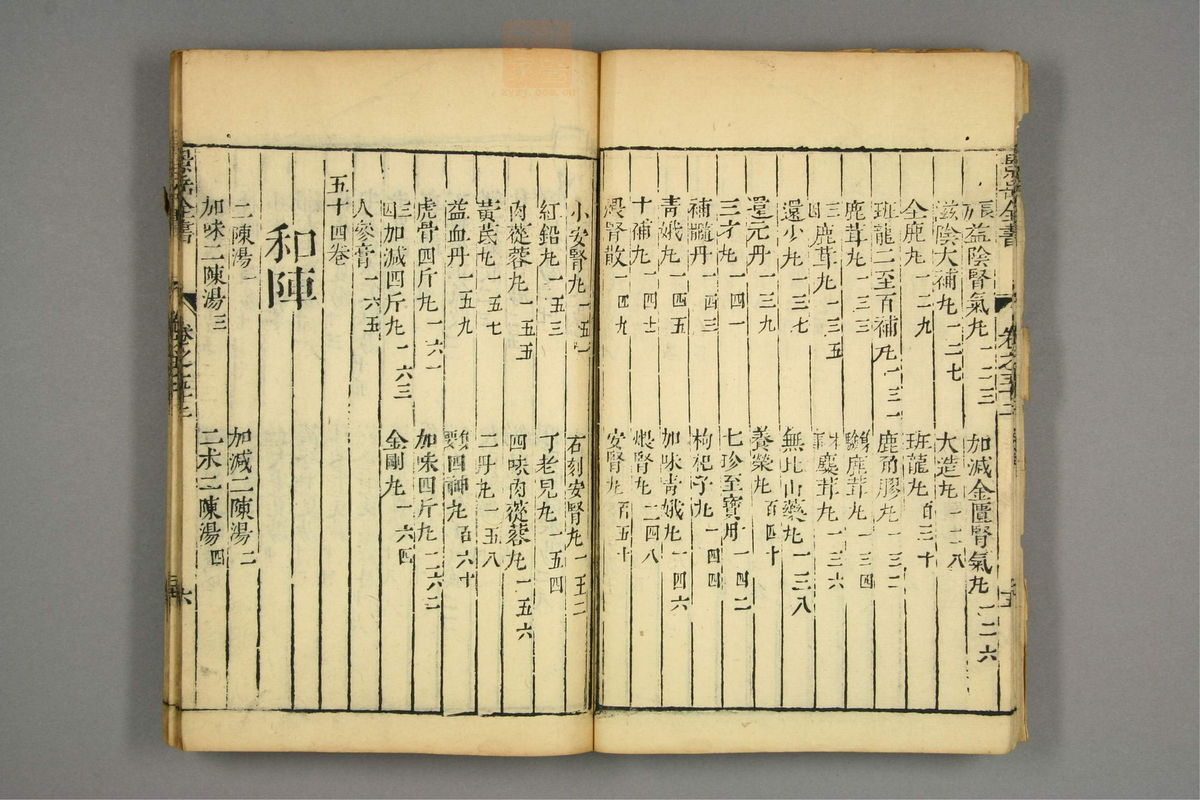 景岳全書 卷之五十三
張益陰腎氣丸一二三 加減金匱腎氣丸一二六
滋陰大補丸一二七 大造丸一二八
全鹿丸一二九 班龍丸百三十
班龍二至百補丸一三一 鹿角膠丸一三二
鹿茸丸一三三 鹿茸丸一三四
三因鹿茸丸一三五 麋茸丸一三六
還少丸一三七 無比山藥丸一三八
還元丹一三九 養榮丸百四十
三才丸一四一 七珍至寶丹一四二
補髓丹一四三 枸杞子丸一四四
青娥丸一四五 加味青娥丸一四六
十補丸一四七 煨腎丸一四八
煨腎散一四九 安腎丸百五十
小安腎丸一五一 石刻安腎丸一五二
紅鉛丸一五三 丁老兒丸一五四
肉蓯蓉丸一五五 四味肉蓯蓉丸一五六
黃芪丸一五七 二丹丸一五八
益血丹一五九 四神丸百六十
虎骨四斤丸一六一 加味四斤丸一六二
三因加減四斤丸一六三 金剛丸一六四
人參膏一六五
五十四卷
和陣
二陳湯一 加減二陳湯二
加味二陳湯三 二朮二陳湯四
景岳全書